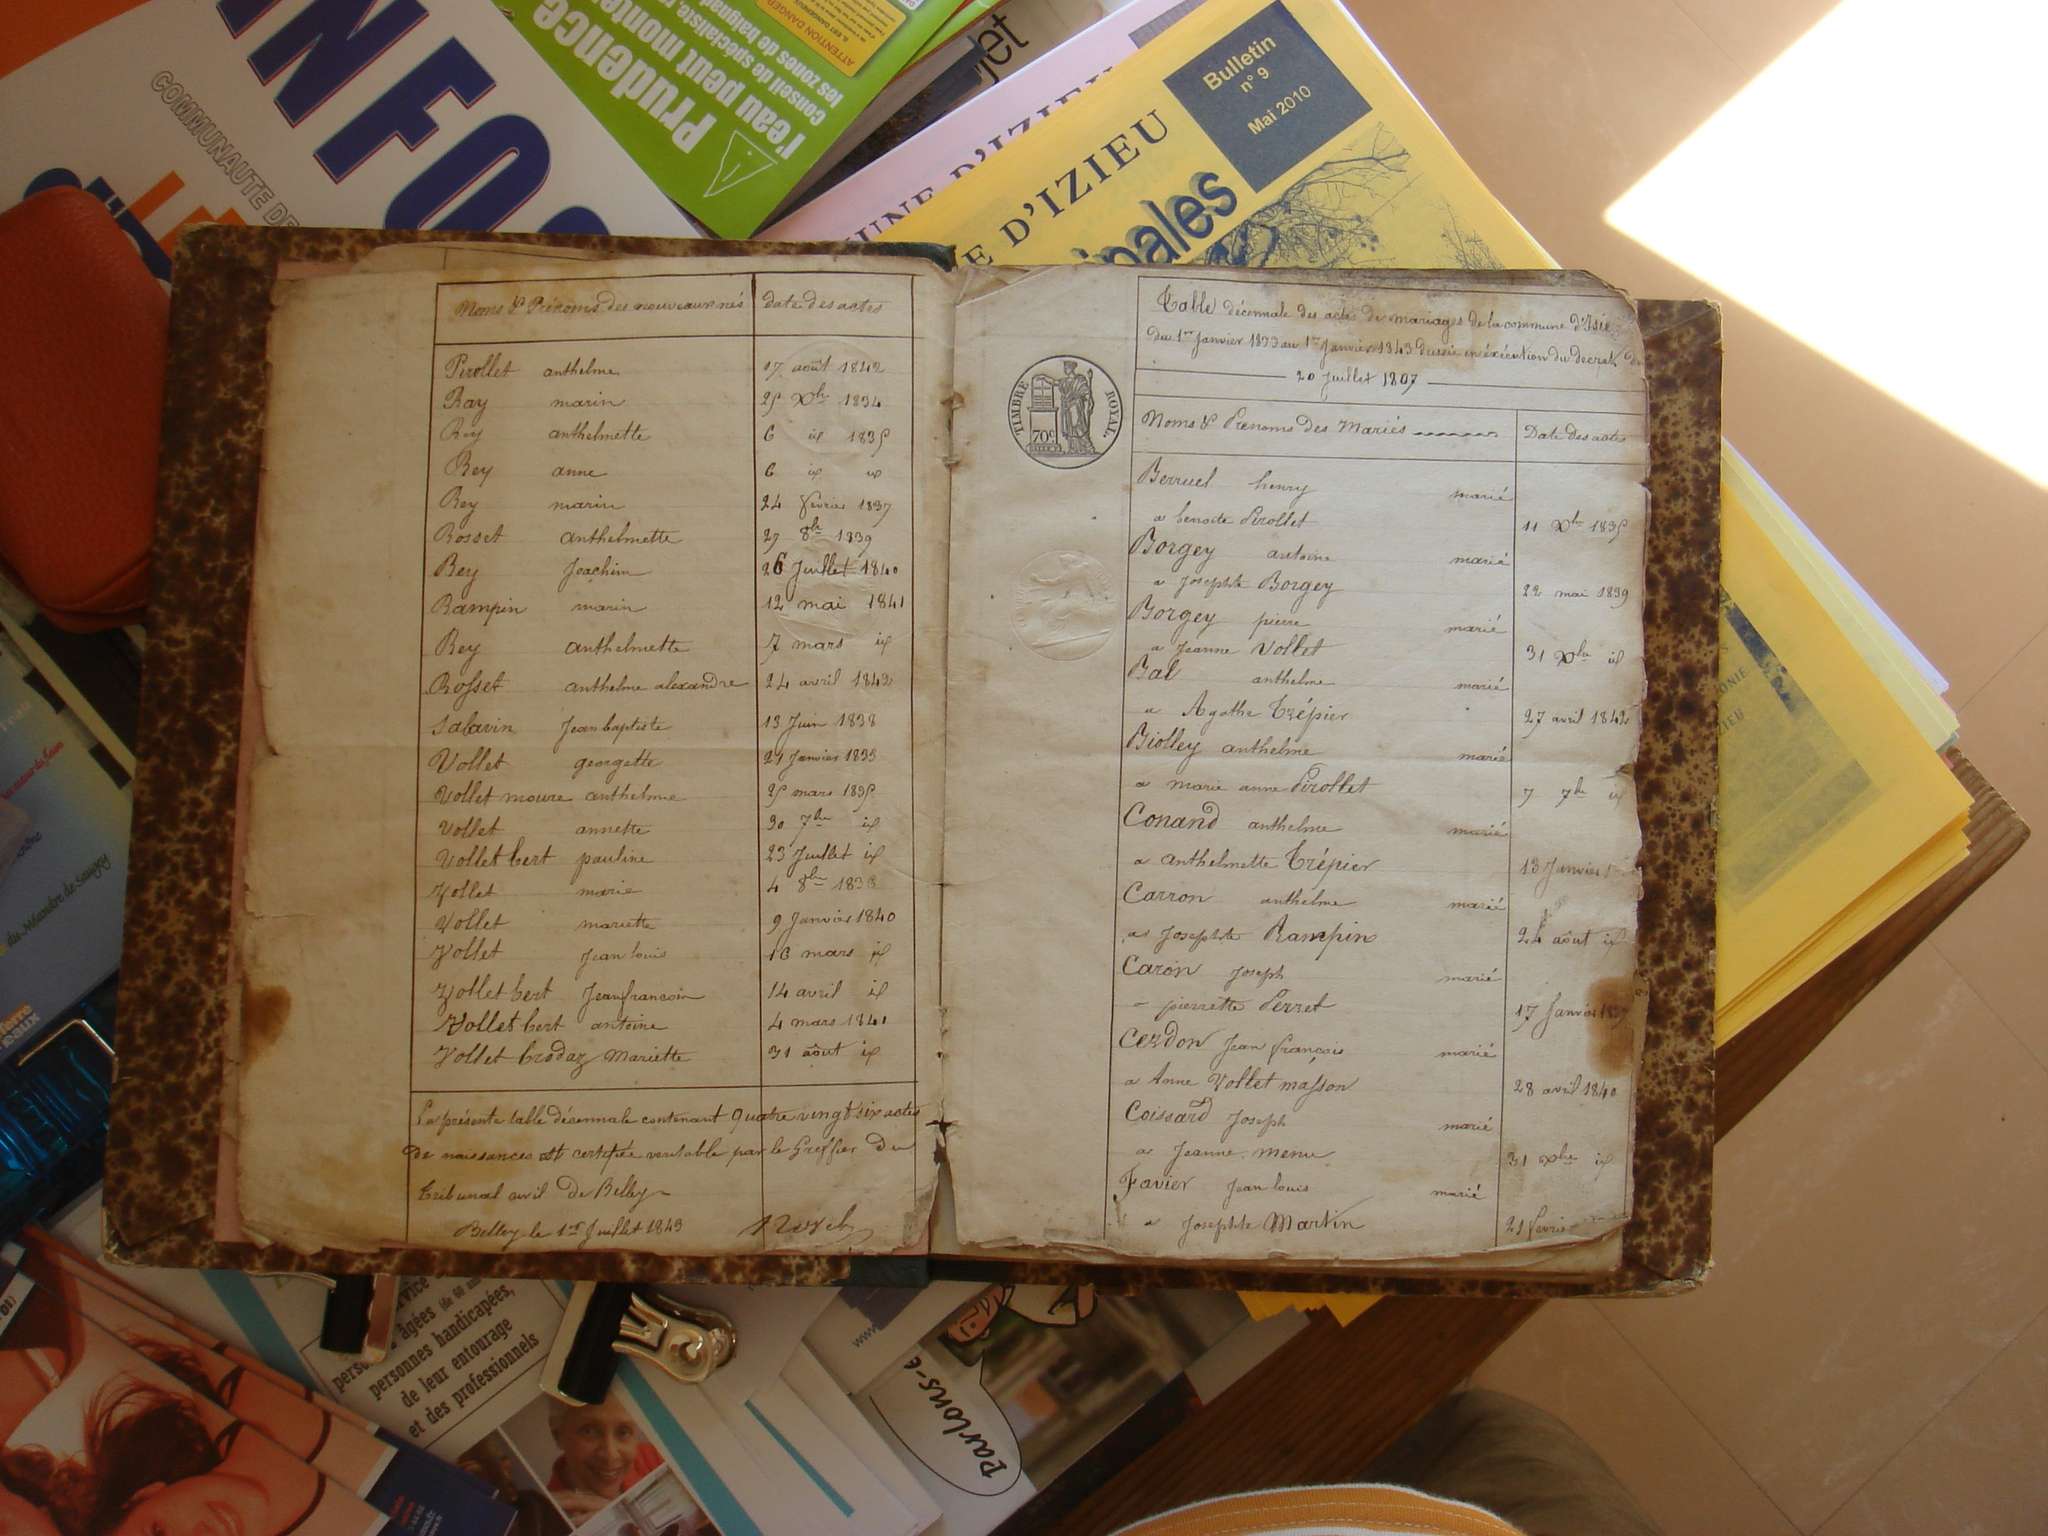 INFOS
COMMUNAUTE DE
Prudence
l'eau peut monter
conseil de spécialiste,
les zones de baignad
ATTENTION DANGER
jet
MUNE D'IZIEU
E D'IZIEU
ipales
Bulletin
n° 9
Mai 2010
Noms & Prénoms des nouveaux nés Date des actes
Pirollet anthelme 17 août 1842
Ray marin 25 Xbre 1834
Rey anthelmette 6 id 1835
Rey anne 6 id id
Rey marin 24 février 1837
Rosset anthelmette 27 8bre 1839
Rey Joachim 26 Juillet 1840
Rampin marin 12 mai 1841
Rey anthelmette 7 mars id
Rosset anthelme alexandre 24 avril 1842
Salavin Jean baptiste 13 Juin 1838
Vollet georgette 21 Janvier 1833
Vollet moure anthelme 25 mars 1835
Vollet annette 30 7bre id
Vollet bert pauline 23 Juillet id
Vollet marie 4 8bre 1838
Vollet mariette 9 Janvier 1840
Vollet Jean louis 16 mars id
Vollet bert Jean francois 14 avril id
Vollet bert antoine 4 mars 1841
Vollet brodaz Mariette 31 août id
La présente table décennale contenant quatre vingt six actes
de naissances est certifiée veritable par le Greffier du
tribunal civil de Belley
Belley le 1er Juillet 1843
TIMBRE ROYAL
70c
Table décennale des actes de mariages de la commune d'Isie
du 1er Janvier 1833 au 1er Janvier 1843 dressée en éxécution du decret du
20 Juillet 1807
Noms & Prenoms des Mariés Date des actes
Berruel henry marié
a benoite Pirollet 11 Xbre 1835
Borgey antoine marié
a Josephte Borgey 22 mai 1839
Borgey pierre marié
a Jeanne Vollet 31 Xbre id
Bal anthelme marié
a Agathe Trépier 27 avril 1842
Biolley anthelme marié
a marie anne Pirollet 7 7bre id
Conand anthelme marié
a anthelmette Trépier 13 Janvier
Carron anthelme marié
a Josephte Rampin 24 août id
Caron Joseph marié
pierrette Perret 17 Janvier
Cerdon Jean françois marié
a Anne Vollet masson 28 avril 1840
Coissard Joseph marié
a Jeanne menu 31 Xbre id
Favier Jean louis marié
a Josephte Martin 21 fevrie
ONIE
IEU
du Méandre de Saugey
erre
eaux
ervice
âgées (de 60
personnes handicapées,
de leur entourage
et des professionnels
www.
Parlons-e